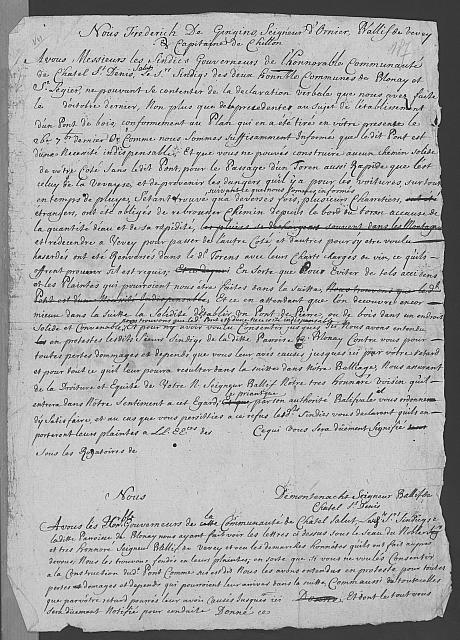 Nous Frederich De Gingins, Seigneur d'Ornier, Ballif de Vevey
& Capitaine de Chillon
A vous Messieurs les Sindics Gouverneurs de l'honnorable Communauté
de Chatel St Denis, Salut les Srs Sindigs des deux honnbles Communes de Blonay et
St Legier, ne pouvant se contenter de la declaration verbale que nous avez faite
le d'octobre dernier, Non plus que de la precedente au sujet de l'etablissement
d'un Pont de bois, conformement au Plan qui en a été tiré en vôtre presence le
26e 7bre dernier Et Comme nous Sommes suffisamment informés que ledit Pont est
d'une Necessité indispensable, Et que vous ne pouvés construire aucun Chemin Solide
de vôtre Coté Sans ledit Pont, pour le Passage d'un Toren aussi Rapide que l'est
celuy de la Vevayse, et de prévenir les dangers qu'il y a pour les voitures, sur tout
suivant que nous sommes informés
en temps de pluye, S'etant trouvé qua diverses fois, plusieurs Charretiers,
etrangers, ont été obligés de rebrousser Chemin depuis le bord du Toran a cause de
la quantité d'eau et de sa rapidité, les pluyes se dechargeans souvent dans les Montagnes
et redecendre a Vevey pour passer de l'autre Coté, et d'autres pour s'y etre voulu
hasarder ont été Renversés dans le dt Torens avec leurs Charts chargés de vin, ce quils
offrent prouver si il est requis, En sorte que Pour Eviter de tels accidens
et les Plaintes qui pourroient nous étre faittes dans la suitte,
Pont est d'une Necessité indispensable, Et ce en attendant que l'on decouvre encor
mieux dans la suitte la Solidité d'etablir un Pont de Pierre, ou de bois dans un endroit
Solide et Convenable, Et pour n'y avoir voulu Consentir jusques ici Nous avons entendu
en protestes les dits Sieurs Sindigs de la ditte Parroise de Blonay Contre vous pour
toutes pertes dommages et depends, que vous leur avés causés jusques ici par vôtre retard
et pour tout ce qui leur pourra resulter dans la suitte dans Nôtre Balliage, Nous assurant
de la Droiture et Equité de Vôtre N. Seigneur Ballif Nôtre tres honnoré Voisin quil
entrera dans Nôtre Sentiment a cet Egard, le priant que par son authorité Baliviale il vous ordonne
d'y Satisfaire, et au cas que vous persistiés a ce refus les dts Sindics vous declarent quils en
porteront leurs plaintes a LL. EEces de Cequi vous Sera düement Signifié
Sous les Rogatoires de
Nous Demontenach Seigneur Ballif de
Chatel St Denis
A vous les Honbles Gouverneurs de la Communauté de Chatel Salut, Les Srs Sindigs de
la ditte Parroise de Blonay nous ayant fait voir les lettres ci dessus sous le Seau du Noble
et tres honnoré Seigneur Ballif de Vevey et veu les demarches honnêtes quils ont fait auprès
de vous, Nous les trouvons fondés en leurs plaintes, en sorte que Si vous ne voulés Consentir
a la Construction dudt Pont Comme susdit Nous les avons entendus en proteste pour toutes
pertes dommages et depends qui pourroient leur arriver dans la suitte Comme aussi de toutes celles
que par vôtre retard pourrés leur avoir Causés jusques ici Et dont le tout vous
Sera düement Notifié pour conduitte Donné ce